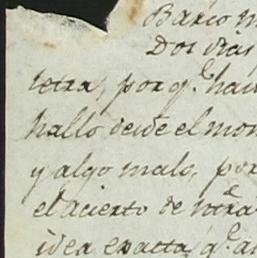 Dos dias
letra, por q.e
hallo desde el mom
y algo malo, por
el acierto de ntra
idea exacta q.e a